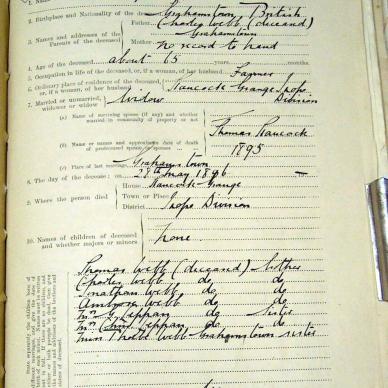 2. Birthplace and Nationality of the deceased Grahamstown, British
3. Names and addresses of the Parents of the deceased Father Charles Webb (deceased) Grahamstown
Mother no record to hand
4. Age of the deceased about 65 years months.
5. Occupation in life of the deceased, or, if a woman, of her husband. Farmer
6. Ordinary place of residence of the deceased, or, if a woman, of her husband. Hancock Grange Ixopo Division
7. Married or unmarried, widower or widow Widow
(a) Name of surviving spouse (if any) and whether married in community of property or not
(b) Name or names and approximate date of death of predeceased spouse or spouses Thomas Hancock
1895
(c) Place of last marriage Grahamstown
8. The day of the decease: on 28th May 1896
9. Where the person died House Hancock Grange
Town or Place
District Ixopo Division
10. Names of children of deceased and whether majors or minors none
Thomas Webb (deceased) brother
Charles Webb do do
Jonathan Webb do do
Ambrose Webb do do
Mrs Tippan do sister
Mrs Tippan do do
Miss Phoebe Webb Grahamstown sister